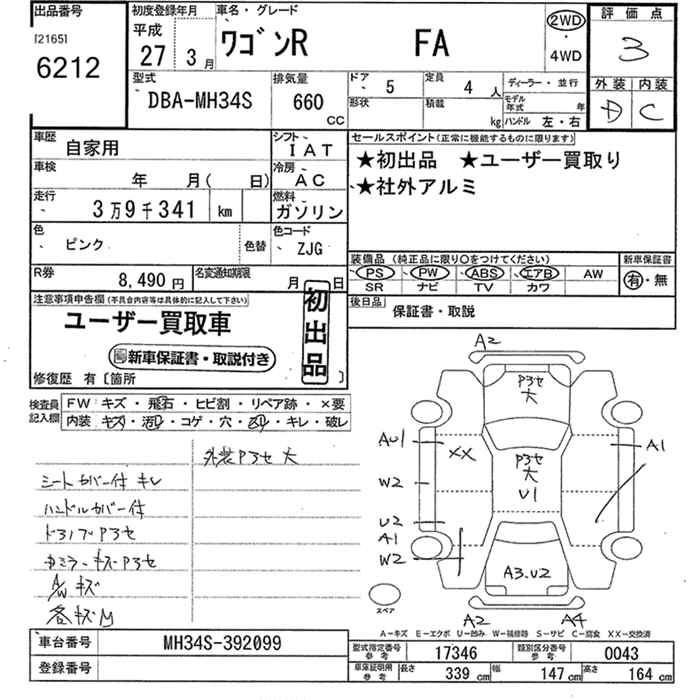 出品番号
[2165]
6212
初度登録年月
平成
27 3月
車名・グレード
ワゴンR FA
2WD
4WD
評価点
3
外装 内装
D C
型式
DBA-MH34S
排気量
660 CC
ドア 5
定員 4 人
形状
積載 kg
ディーラー・並行
モデル年式 年
ハンドル 左・右
車歴
自家用
シフト
IAT
車検
年 月( 日)
冷房
AC
走行
3万9千341 km
燃料
ガソリン
色
ピンク
色替
色コード
ZJG
R券
8,490円
名変通知期限
月 日
セールスポイント(正常に機能するものに限ります)
★初出品 ★ユーザー買取り
★社外アルミ
装備品 (純正品に限り〇をつけてください)
PS PW ABS エアB AW
SR ナビ TV カワ
新車保証書
有・無
後日品
保証書・取説
注意事項申告欄(不具合内容等は具体的に記入して下さい)
ユーザー買取車
初出品
新車保証書・取説付き
修復歴 有〔箇所 〕
検査員記入欄
FW キズ・飛石・ヒビ割・リペア跡・×要
内装 キズ・汚れ・コゲ・穴・凹・キレ・破レ
外装Pヨセ 大
シートカバー付 キレ
ハンドルカバー付
ドアノブPヨセ
ミラーキズPヨセ
A/W キズ
各キズM
A2
Pヨセ
大
AU1
XX
A1
W2
Pヨセ
大
U1
U2
A1
W2
A3.U2
スペア
A2 A4
A-キズ E-エクボ U-凹み W-補修跡 S-サビ C-腐食 XX-交換済
車台番号
MH34S-392099
登録番号
型式指定番号
参考
17346
類別区分番号
参考
0043
車庫証明用
参考
長さ 339 cm
幅 147 cm
高さ 164 cm